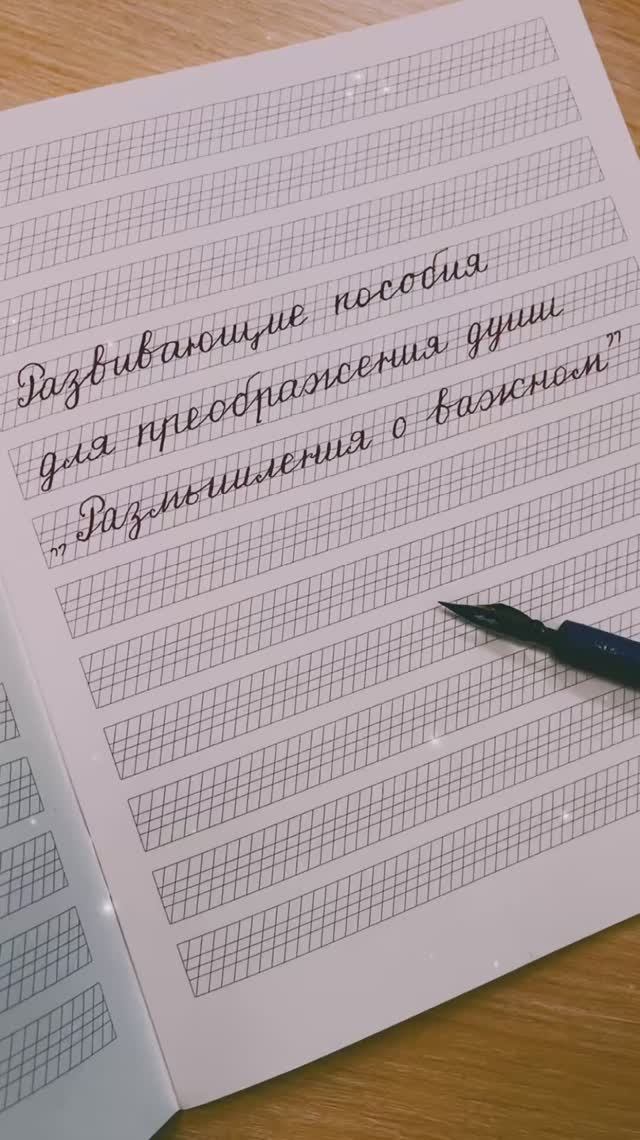 Развивающие пособия
для преображения души
„Размышления о важном”